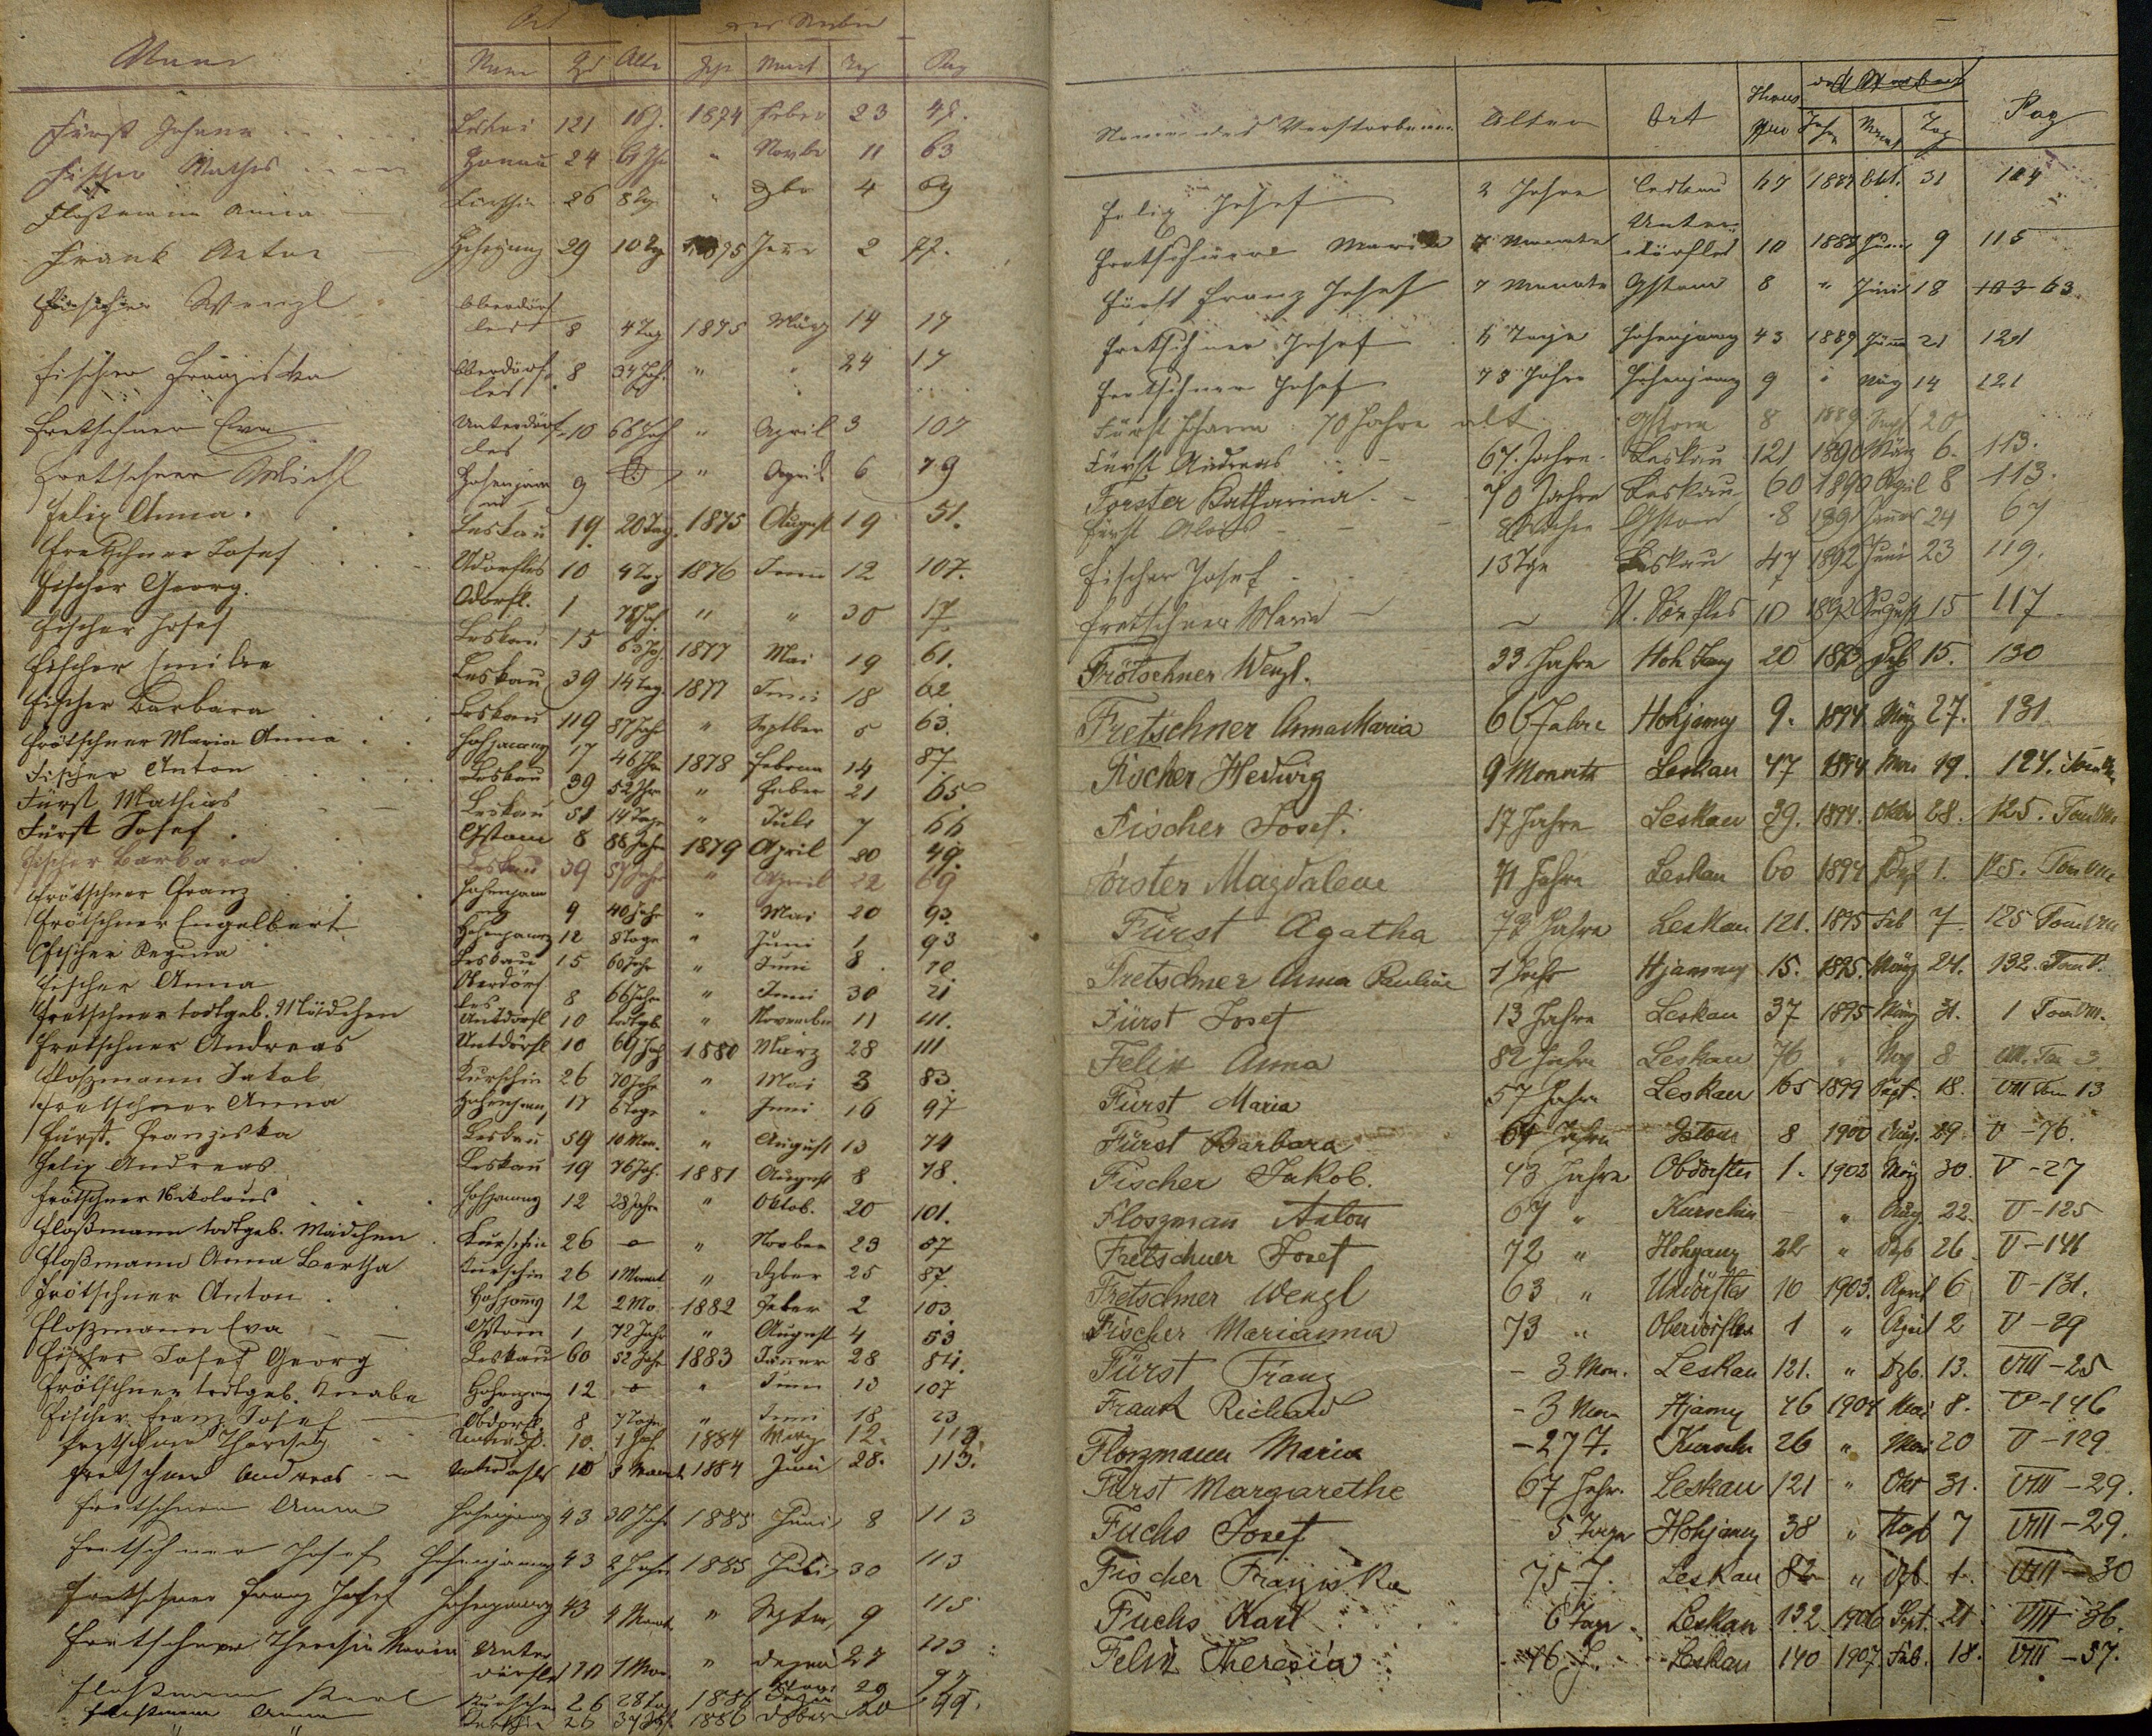 Ort
Fürst Johann 121 16 J. 1874 Feber 23
Fischer Mathes 24 " Novbr 11 63
Floßmann Anna 26 8 Tg " Dzbr 4 69
Frank Anton 29 10 Tg 1875 Jenr 2 77.
Wenzl Oberdörf-
les 8 4 Tag 1875 März 14 17
Fischer Franziska Oberdörf-
les 8 34 Jah. " " 24 17
Fretschner Eva Unterdörf-
les 10 68 Jah " April 3 107
Fretschner Michl Hohenjam 9 " April 6 79
Felix Anna. Leskau 19. 20 Tag. 1875 August 19 51.
Fretschner Josef Udorfles 10 4 Tag 1876 12 107.
Fischer Georg. Odorfl. 1 78 Jah. " " 30 17
Fischer Josef Leskau 15 63 Jah. 1877 Mai 19 61.
Fischer Emilie Leskau 39 14 Tag. 1877 Juni 18 62
Fischer Barbara Leskau 119 87 Jah " Septber 5 63.
Frötschner Maria Anna Hohjamny 17 46 Jhr 1878 Februar 14 87
Fischer Anton Leskau 39 52 Jhr " Feber 21 65
Fürst Mathias Leskau 51 14 Tage " Juli 7 66
Fürst Josef. Gstom 8 88 Jahre 1879 April 20 49.
Fischer Barbara Leskau 39 57 Jahre " April 22 69
Frötschner Franz Hohenjam 9 40 Jahr " Mai 20 93.
Frötschner Engelbert Hohenjamny 12 8 Tage " Juni 1 93
Fischer Regina Leskau 15 60 Jahr " Juni 8. 70.
Fischer Anna Oberdörf
les 8 66 Jahre " Juni 30 21
Fretschner todtgeb. Mädchen Untdörfl 10 todtgb. " November 11 111.
Fretschner Andreas Untdörfl 10 69 Jah 1880 März 28 111
Floszmann Jakob Kurschin 26 70 Jahr " Mai 3 83.
Fretschner Anna 17 6 Tage " Juni 16 97
Fürst. Franziska Leskau 59 10 Mon. " August 13 74
Felix Andreas Leskau 19 76 Jah. 1881 August 8 78.
Frötschner Nikolaus Hohjamny 12 28 Jahre " Oktob. 20 101.
Floßmann todtgeb. Mädchen Kurschin 26 " Novber 23 87
Floßmann Anna Bertha Kurschin 26 1 Monat " Dzber 25 87.
Frötschner Anton Hohjamny 12 2 Mo. 1882 Feber 2 103
Floszmann Eva Gstom 1 72 Jahr " August 4 53
Fischer Josef Georg Leskau 60 52 Jahr 1883 Jänner 28 84.
Frötschner todtgeb. Knabe Hohenjamny 12 " Juni 13 107
Fischer Franz Josef Obdorfl. 8 7 Tage " Juni 18 23
Fretschner Theresia 10. 1 Jah. 1884 März 12.
Fretschner Andreas 10 1884 Juni 28. 113.
Fretschner Anna Hohenjamny 43 30 Jah 1885 Juni 8 113
Fretschner Josef Hohenjamny 43 2 Jahre 1885 Juli 30 113
Fretschner Franz Josef Hohenjamny 43 4 Monat " Septem 9 115
Fretschner Theresia Maria Unter
dörfles 10 7 Mon. " Dezem 27 113
Floßmann Karl Kurschin 26 28 Tag 1886 29 97
Floßmann Anna 26 1886 Dzber 20 99.
Name des Verstorbenen Alter Ort Haus Nro Jahr Monat Tag Pag
Felix Josef 2 Jahre Leskau 67 1887 Okt. 31 114
Fretschner Maria 7 Monate Unter-
dörfles 10 1888 9 115
Fürst Franz Josef 7 Monate Gstom 8 " Juni 18 103 63.
Fretschner Josef Tage Hohenjamny 43 1889 Jänn 21 121
Fretschner Josef 78 Jahre Hohenjamny 9 " März 14 121
Fürst Johann 70 Jahre alt Gstom 8 1889 Sept 20
Fürst Andreas 67. Jahre Leskau 121 1890 März 6. 113.
Forster Katharina. 70 Jahre Leskau 60 1890 April 8 113.
Fürst Alois Gstom 8 1891 Jänner 24 67
Fischer Josef 13 Tge Leskau 47 1892 Juni 23 119.
Fretschner Maria U. Dörfles 10 1892 August 15 117
Frötschner Wenzl. 33 Jahre Hoh Jamy 20 1893 Dzb 15. 130
Fretschner Anna Maria 66 Jahre Hohjamny 9. 1894 März 27. 131
Fischer Hedwig 9 Monate Leskau 47 1894 Mai 19. 124.
Fischer Josef. 17 Jahre Leskau 39. 1894. Okber 28. 125. Tom VIII
Forster Magdalene 71 Jahre Leskau 60 1894 Dez 1. 125. Tom VIII
Fürst Agatha 72 Jahre Leskau 121. 1895 Feb 7. 125 Tom VIII
Fretschner Anna Pauline 1 Jahr Hjamny 15. 1895. März 24. 132. Tom V.
Fürst Josef 13 Jahre Leskau 37 1895 März 31. 1 Tom VIII.
Felix Anna 82 Jahre Leskau 76 " 8
Fürst Maria 57 Jahre Leskau 165 1899 Sept. 18. VIII Tom 13
Fürst Barbara 64 Jahre Gstom 8 1900 Aug. 29. V - 76.
Fischer Jakob. 43 Jahre Obdörfles 1. 1902 März 30. V - 27
Floszmann Anton 67 " Kurschin - " Aug. 22. V - 125
Fretschner Josef 72 " Hohjamy 22 " Dzb 26. V - 146
Fretschner Wenzl 63 " Undörfles 10 1903. April 6 V - 131.
Fischer Marianna 73 " Oberdörfles 1 " April 2 V - 29
Fürst Franz - 3 Mon. Leskau 121. " Dzb. 13. VIII - 25
Frank Richard - 3 Mon Hjamy 46 1904 Mai 8. V - 146
Floszmann Maria - 27 T. Kursch 26 " Mai 20 V - 129
Fürst Margarethe 67 Jahr. Leskau 121 " Okt 31. VIII - 29.
Fuchs Josef 5 Tage Hohjamy 38 " 7 VIII - 29.
Fischer Franziska 75 J. Leskau 82 " Dzb. 1. VIII - 30
Fuchs Karl 6 Tage Leskau 132 1906 Sept. 21 VIII 36.
Felix Theresia 46 J. Leskau 140 1907 Feb. 18. VIII - 37.